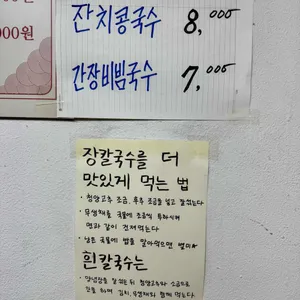 000원
잔치콩국수 8,000
간장비빔국수 7,000
장칼국수를 더
맛있게 먹는 법
· 청양고추 조금, 후추 조금을 넣고 잘 섞는다
· 무생채를 국물에 조금씩 투하시켜
면과 같이 건져먹는다
· 남은 국물에 밥을 말아먹으면 별미
흰칼국수는
· 양념장을 잘 섞은 뒤 청양고추와 소금으로
간을 하며 김치, 무생채와 함께 먹는다.